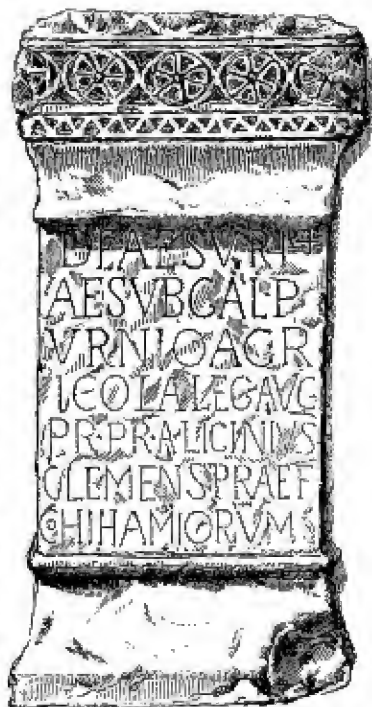 DEAESVRI
AESVBCALP
VRNIOAGR
ICOLALEGAVG
PR·PR·A·LICINIVS
CLEMENSPRAEF
COHIHAMIORVM